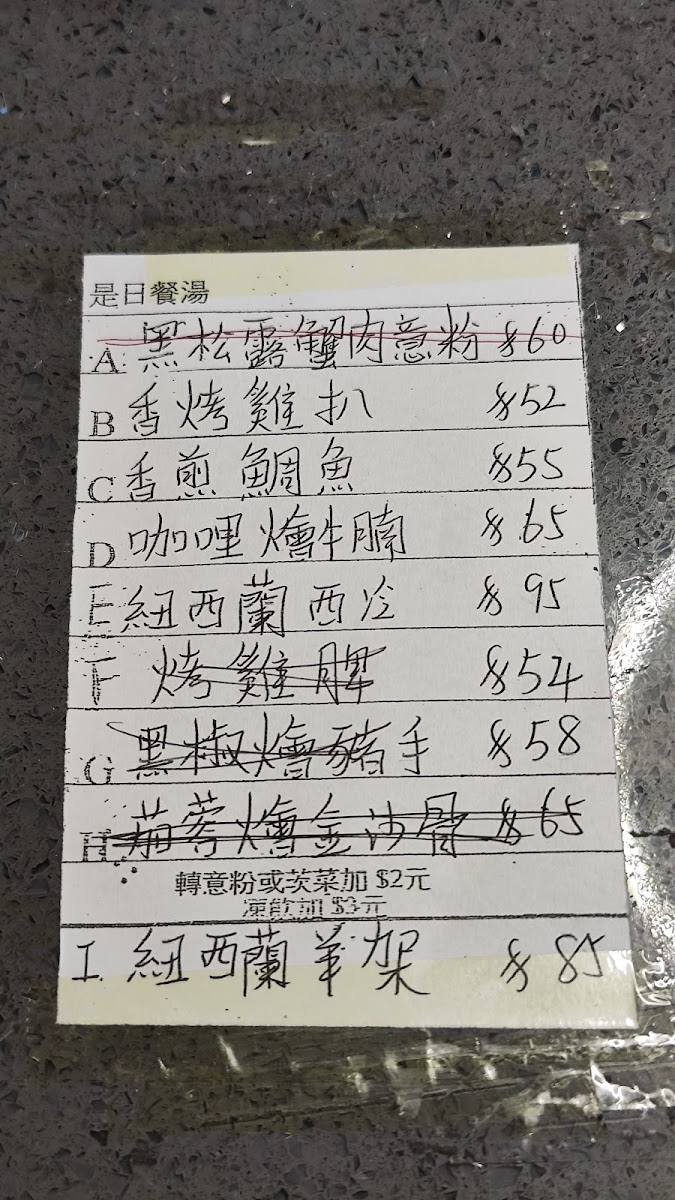 是日餐湯
A 黑松露蟹肉意粉 $60
B 香烤雞扒 $52
C 香煎鯛魚 $55
D 咖哩燴牛腩 $65
E 紐西蘭西冷 $95
F 烤雞髀 $54
G 黑椒燴豬手 $58
H 茄蓉燴金沙骨 $65
轉意粉或茨菜加 $2元
凍飲加 $3元
I. 紐西蘭羊架 $85